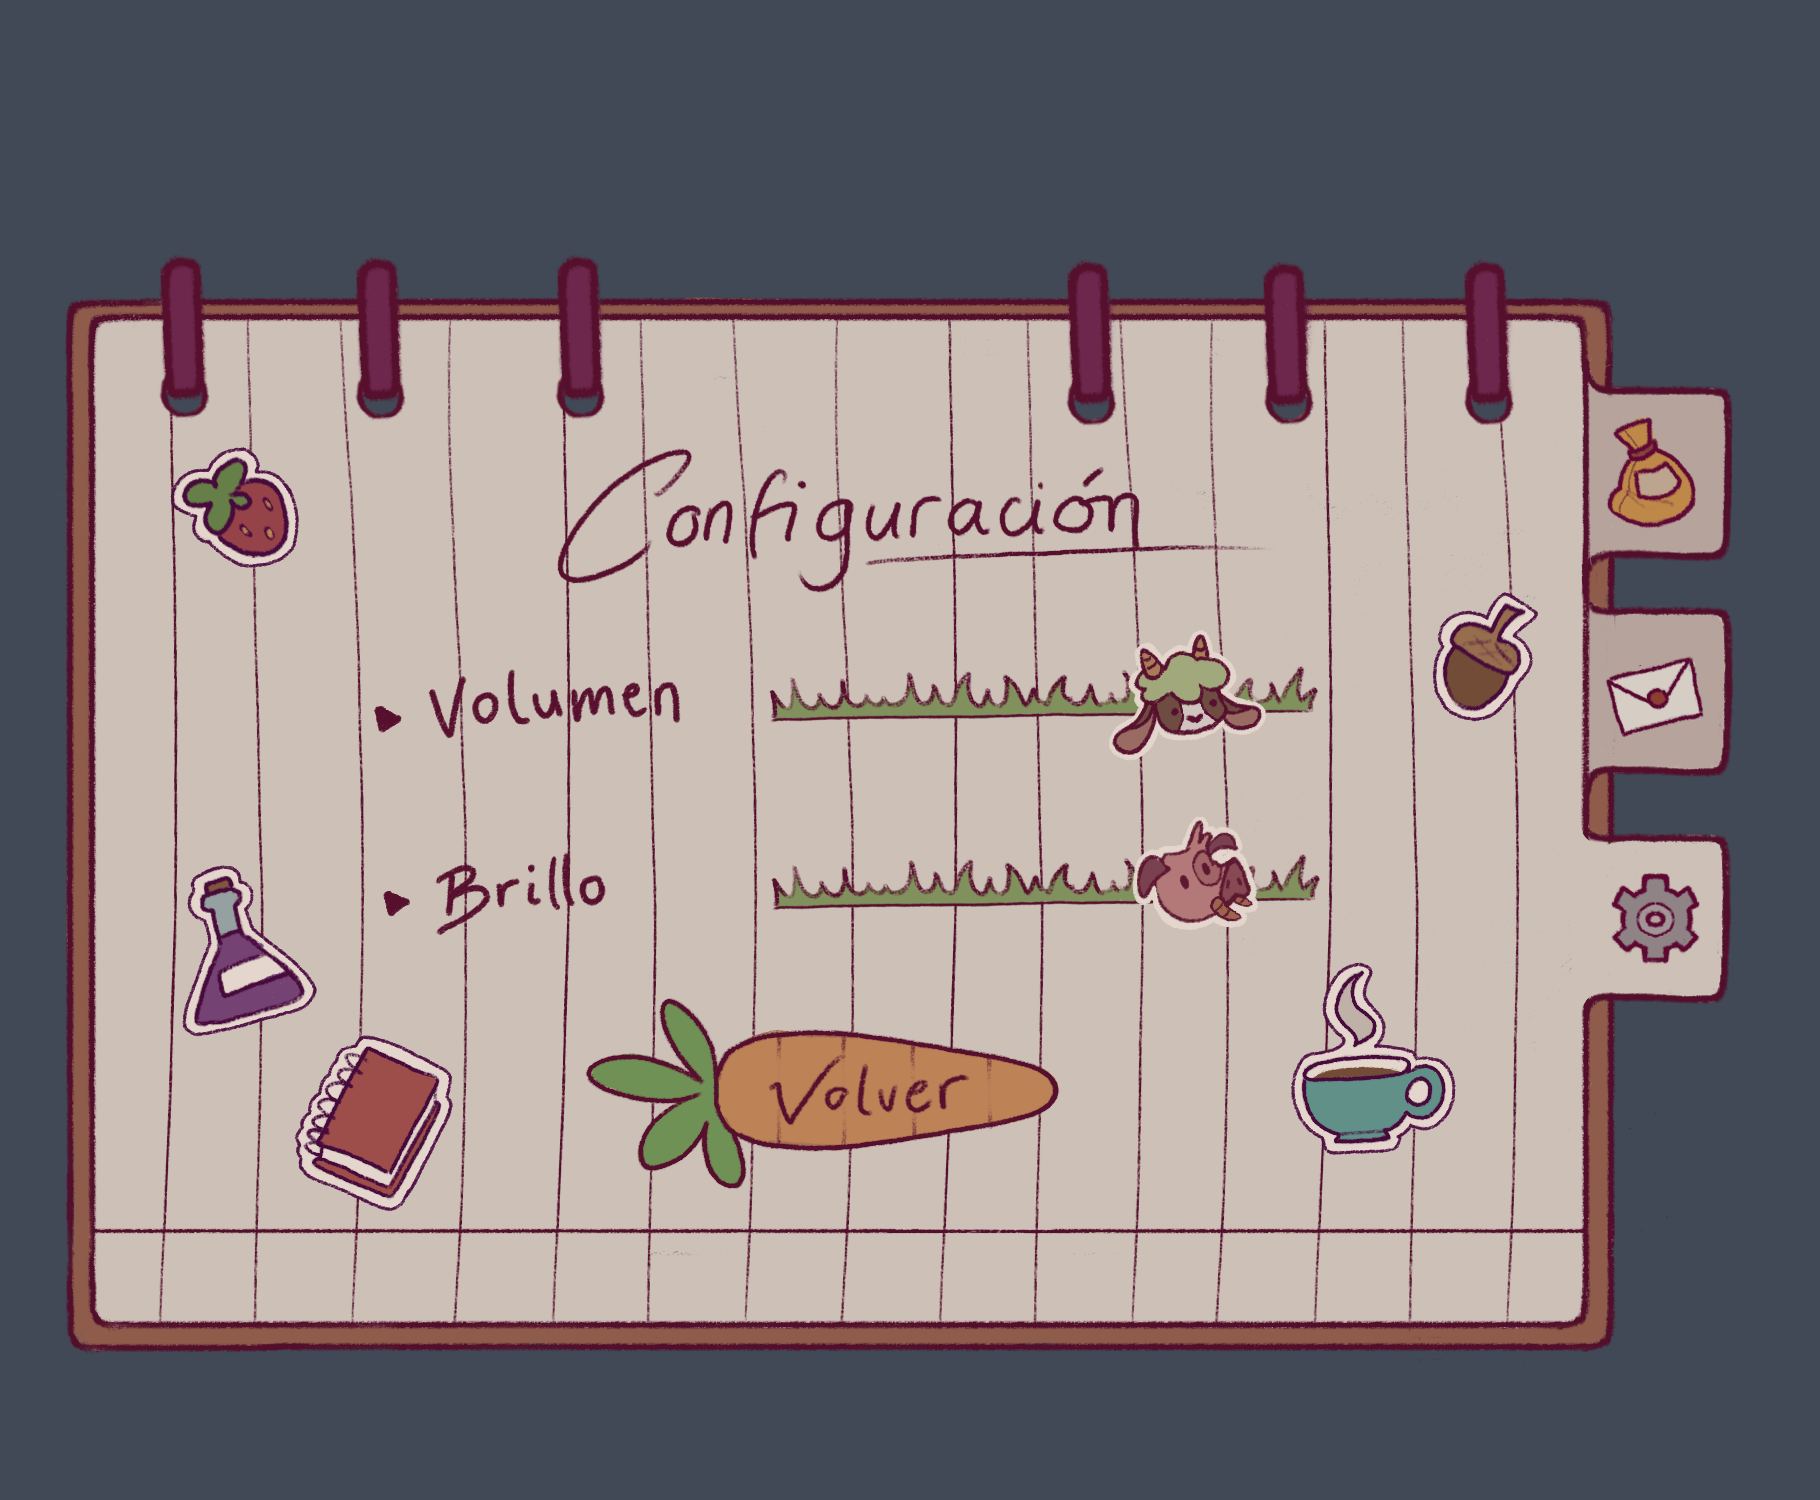 Configuración
Volumen
Brillo
Volver